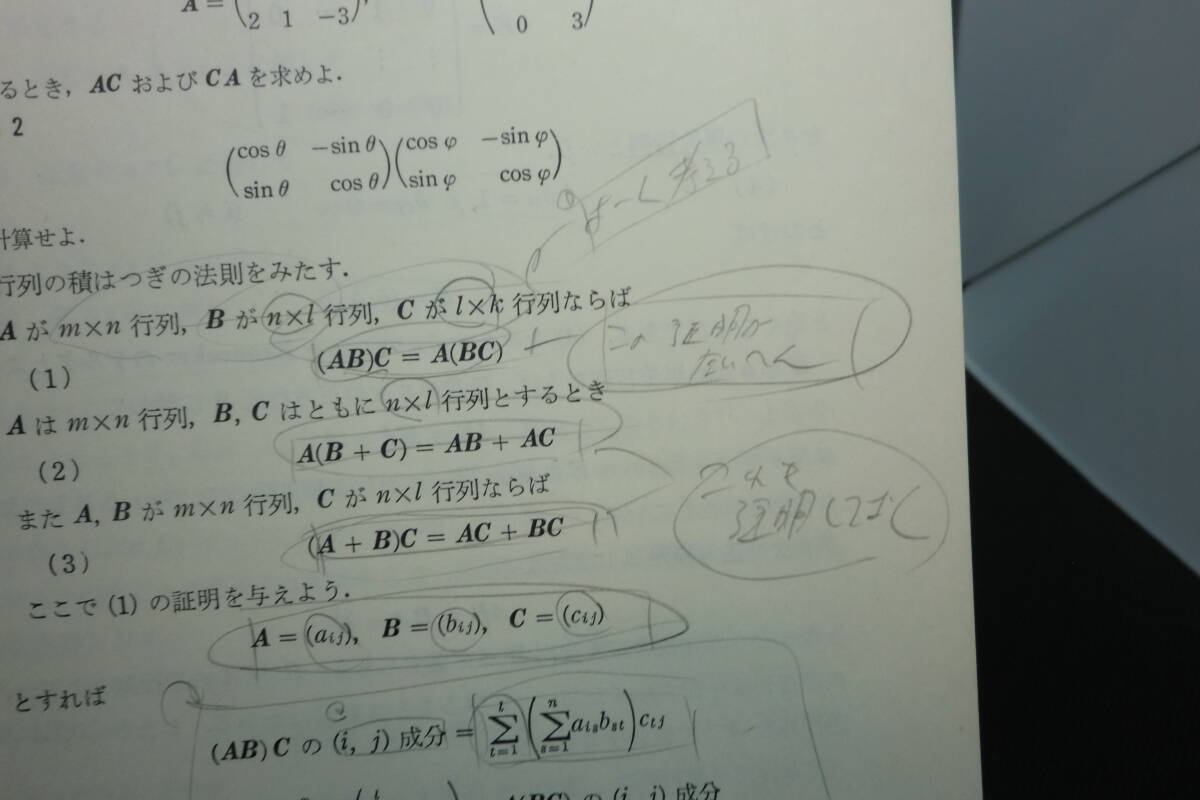 A =
2 1 −3 , 0 3
るとき, AC および CA を求めよ.
2
(cos θ −sin θ)(cos φ −sin φ)
(sin θ cos θ)(sin φ cos φ)
よーく考える
計算せよ.
行列の積はつぎの法則をみたす.
A が m×n 行列, B が n×l 行列, C が l×k 行列ならば
(1) (AB)C = A(BC)
この証明が
たいへん
A は m×n 行列, B, C はともに n×l 行列とするとき
(2) A(B + C) = AB + AC
また A, B が m×n 行列, C が n×l 行列ならば
(3) (A + B)C = AC + BC
これを
証明しておく
ここで (1) の証明を与えよう.
A = (aij), B = (bij), C = (cij)
とすれば
(AB)C の (i, j) 成分 = ∑ l t=1 (∑ n s=1 ais bst) ctj
A(BC) の (i, j) 成分